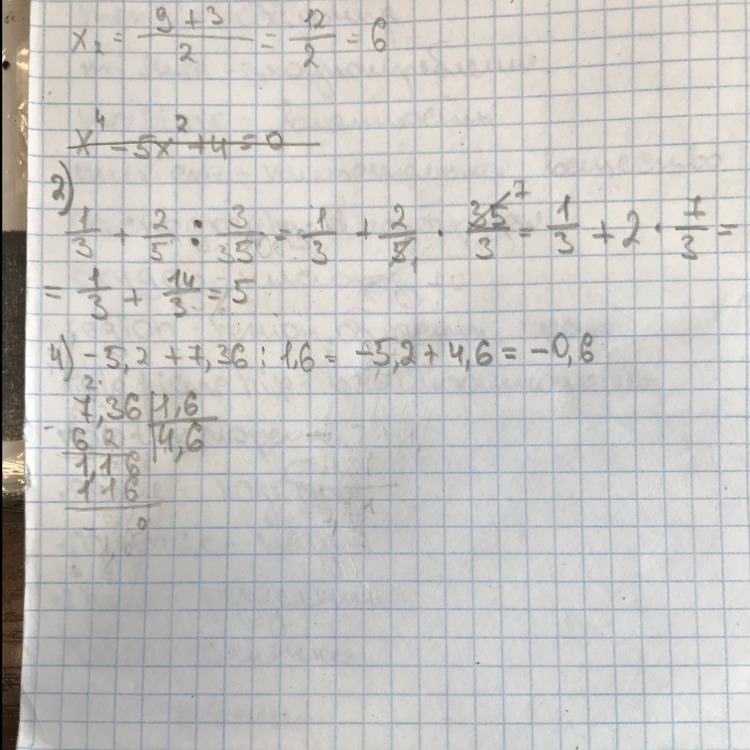 x₂ = (9+3)/2 = 12/2 = 6
x⁴ - 5x² + 4 = 0
2)
1/3 + 2/5 : 3/35 = 1/3 + 2/5₁ · 35⁷/3 = 1/3 + 2 · 7/3 =
= 1/3 + 14/3 = 5
4) -5,2 + 7,36 : 1,6 = -5,2 + 4,6 = -0,6
7,36 | 1,6
6 2 | 4,6
1,16
116
0